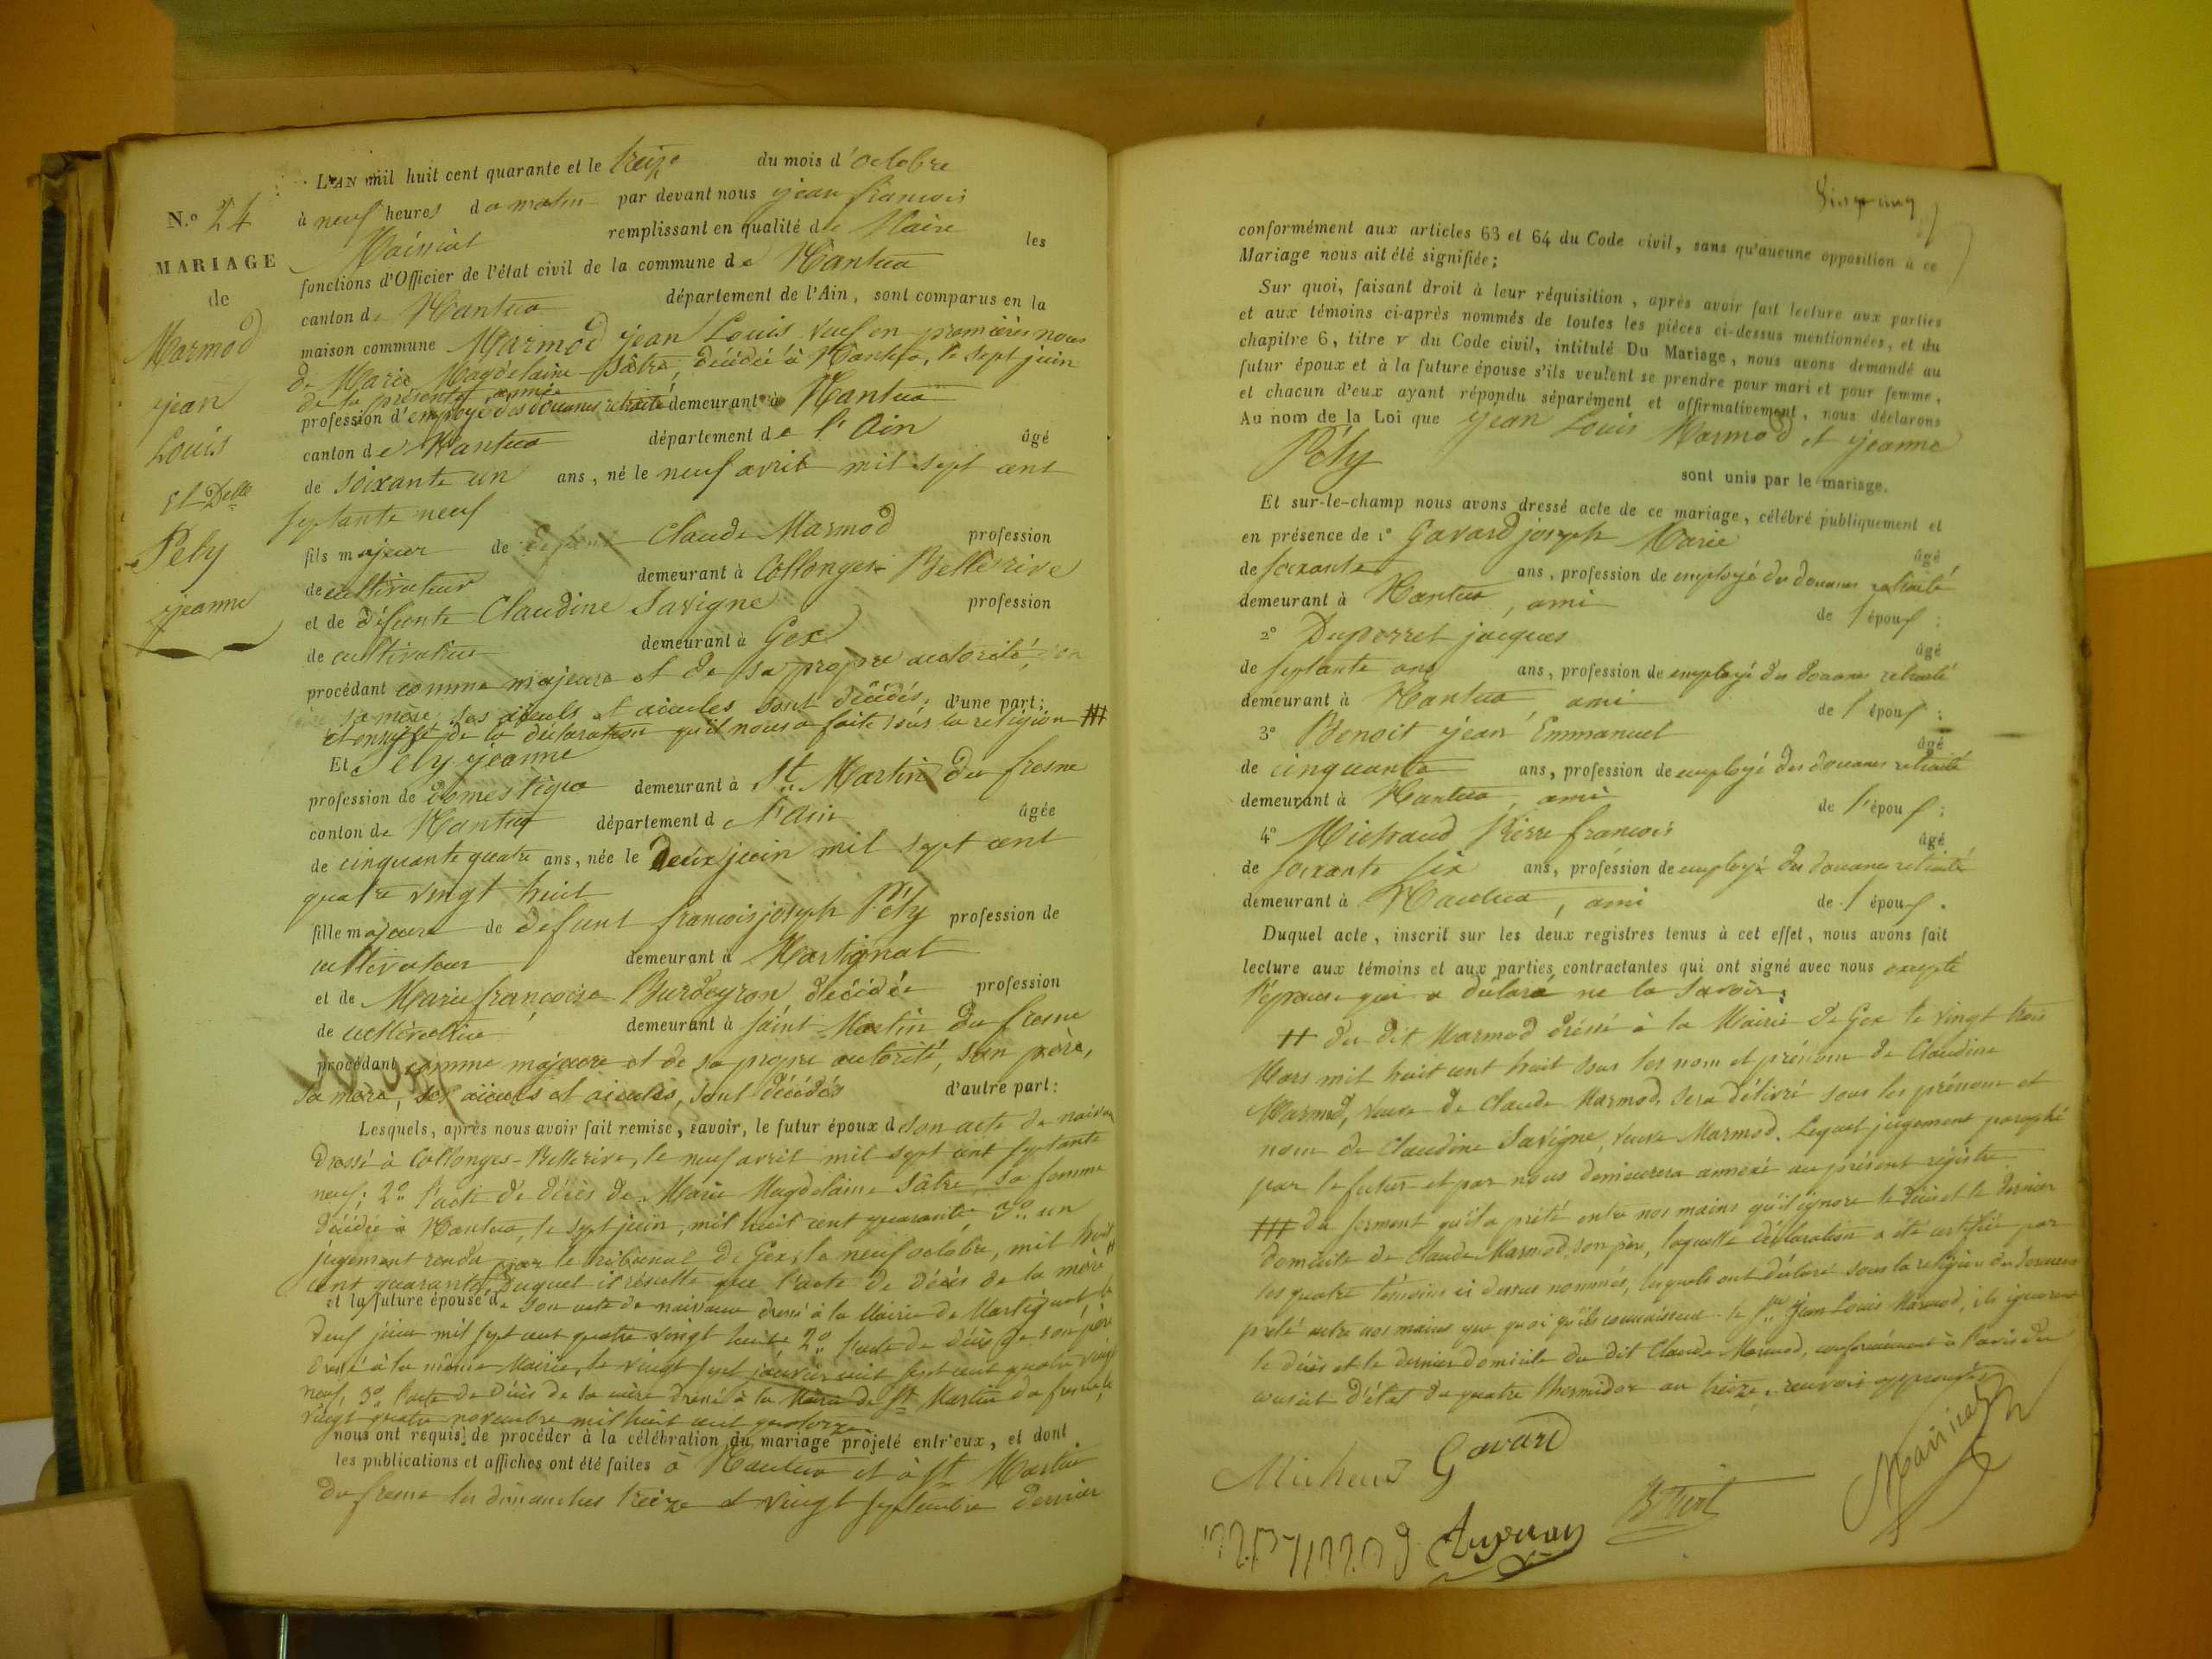 N.º 24
MARIAGE
de
Marmod
jean
Louis
Et Delle
Pély
jeanne
L'AN mil huit cent quarante et le treize du mois d'octobre
à neuf heures du matin par devant nous jean françois
Mainiat remplissant en qualité de Maire les
fonctions d'Officier de l'état civil de la commune de Nantua
canton de Nantua département de l'Ain, sont comparus en la
maison commune Marmod jean Louis veuf en premières noces
de Marie Magdelaine Sâtre, décédée à Nantua, le sept juin
de la présente année
profession d'employé des douanes retraité demeurant à Nantua
canton de Nantua département de l'Ain âgé
de soixante un ans, né le neuf avril mil sept cent
septante neuf
fils majeur de Claude Marmod profession
de cultivateur demeurant à Collonges-Bellerive
et de défunte Claudine Savigne profession
de cultivatrice demeurant à Gex
procédant comme majeure et de sa propre autorité,
sa mère, ses aieuls et aieules sont décédés, d'une part;
et ensuite de la déclaration qu'il nous a faite sous la religion ###
Et Pély jeanne
profession de domestique demeurant à St Martin du fresne
conton de Nantua département d l'Ain âgée
de cinquante quatre ans, née le deux juin mil sept cent
quatre vingt huit
fille majeure de defunt françois joseph Pély profession de
cultivateur demeurant à Martignat
et de Marie françoise Burdeyron décédée profession
de cultivatrice demeurant à saint Martin du fresne
procédant comme majeure et de sa propre autorité, son père,
sa mère, ses aieuls et aieules, sont décédés d'autre part:
Lesquels, après nous avoir fait remise, savoir, le futur époux d son acte de naissance
dressé à Collonges-Bellerive, le neuf avril mil sept cent septante
neuf; 2º l'acte de décès de Marie Magdelaine Sâtre, sa femme
décédée à Nantua, le sept juin, mil huit cent quarante, 3º un
jugement rendu par le tribunal de Gex, le neuf octobre, mil huit
cent quarante, duquel il résulte que l'acte de décès de la mère
et la future épouse de son acte de naissance dressé à la Mairie de Martignat, le
deux juin mil sept cent quatre vingt huit 2º l'acte de décès de son père
dressé à la même Mairie, le vingt sept janvier mil sept cent quatre vingt
neuf, 3º l'acte de décès de sa mère dressé à la Mairie de St Martin du fresne, le
vingt quatre novembre mil huit cent quatorze
nous ont requis de procéder à la célébration du mariage projeté entr'eux, et dont
les publications et affiches ont été faites à Nantua et à St Martin
du fresne les dimanches treize et vingt septembre dernier
conformément aux articles 63 et 64 du Code civil, sans qu'aucune opposition à ce
Mariage nous ait été signifiée;
Sur quoi, faisant droit à leur réquisition, après avoir fait lecture aux parties
et aux témoins ci-après nommés de toutes les pièces ci-dessus mentionnées, et du
chapitre 6, titre v du Code civil, intitulé Du Mariage, nous avons demandé au
futur époux et à la future épouse s'ils veulent se prendre pour mari et pour femme,
et chacun d'eux ayant répondu séparément et affirmativement, nous déclarons
Au nom de la Loi que jean Louis Marmod et jeanne
Pély
sont unis par le mariage.
Et sur-le-champ nous avons dressé acte de ce mariage, célébré publiquement et
en présence de 1º Gavard joseph Marie âgé
de soixante ans, profession de employé des douanes retraité
demeurant à Nantua, ami de l'époux;
2º Duperret jacques âgé
de septante ans ans, profession de employé des douanes retraité
demeurant à Nantua, ami de l'époux;
3º Benoit jean Emmanuel âgé
de cinquante ans, profession de employé des douanes retraité
demeurant à Nantua, ami de l'époux;
4º Michaud Pierre françois âgé
de soixante six ans, profession de employé des douanes retraité
demeurant à Nantua, ami de l'époux.
Duquel acte, inscrit sur les deux registres tenus à cet effet, nous avons fait
lecture aux témoins et aux parties contractantes qui ont signé avec nous excepté
l'épouse qui a déclaré ne le savoir;
## du dit Marmod dressé à la Mairie de Gex le vingt trois
Mars mil huit cent huit sous les nom et prénom de Claudine
Marmod, veuve de Claude Marmod, sera délivré sous les prénom et
nom de Claudine Savigne, veuve Marmod. Lequel jugement paraphé
par le futur et par nous demeurera annexé au présent régistre
### du serment qu'il a prêté entre nos mains qu'il ignore le décès et le dernier
domicile de Claude Marmod, son père, laquelle déclaration a été certifiée par
les quatre témoins ci dessus nommés, lesquels ont déclaré sous la religion du serment
prêté entre nos mains que quoi qu'ils connaissent le sr Jean Louis Marmod, ils ignorent
le décès et le dernier domicile du dit Claude Marmod, conformément à l'avis du
conseil d'état du quatre thermidor an treize, renvois approuvés
Michaud Gavard